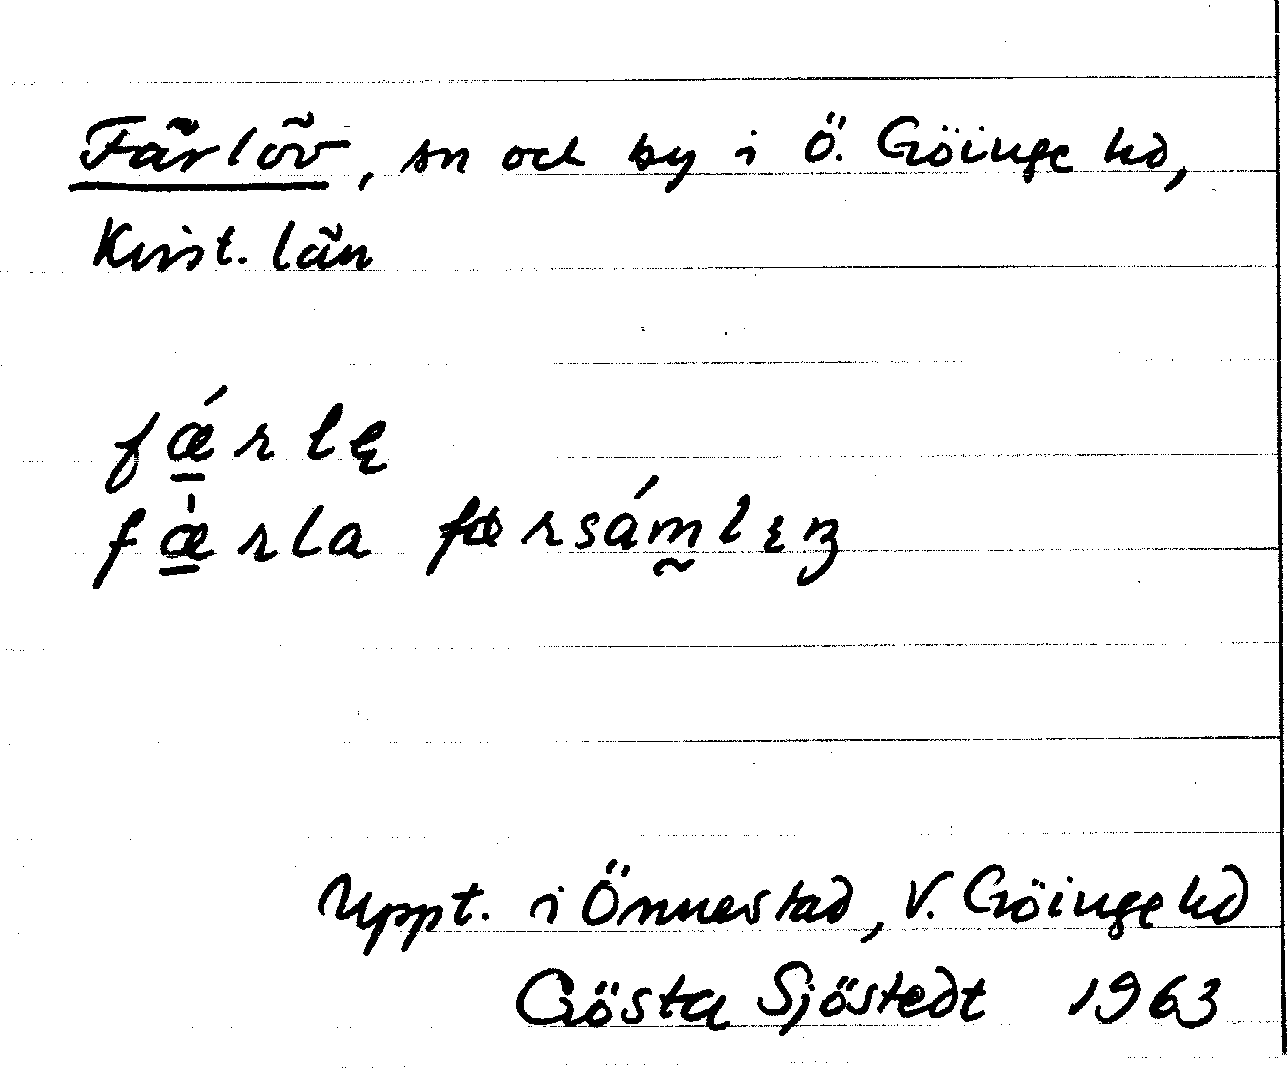 Färlöv, sn och by i Ö. Göinge hd,
Krist. län
fǽ̱rlę
fæ̱̍rla førsám̰lɪŋ
Uppt. i Önnestad, V. Göinge hd
Gösta Sjöstedt 1963